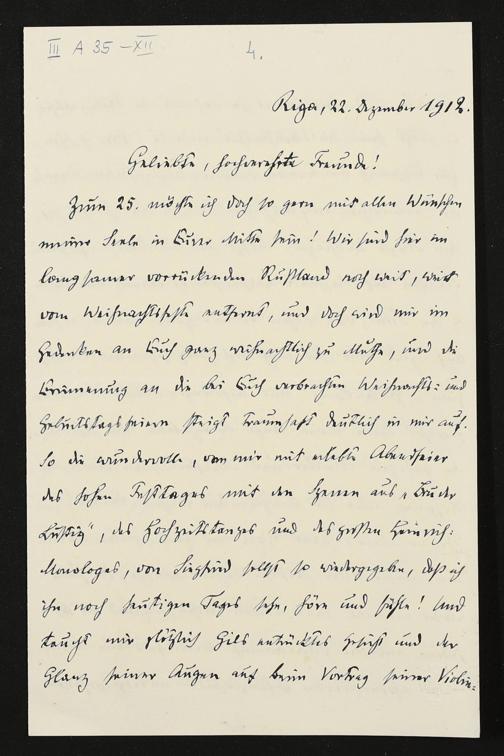 III A 35 –XII
4.
Riga, 22. Dezember 1912.
Geliebte, hochverehrte Freunde!
Zum 25. möchte ich doch so gern mit allen Wünschen
meiner Seele in Eurer Mitte sein! Wir sind hier im
langsamer vorrückenden Rußland noch weit, weit
vom Weihnachtsfeste entfernt, und doch wird mir im
Gedenken an Euch ganz weihnachtlich zu Muthe, und die
Erinnerung an die bei Euch verbrachten Weihnachts= und
Geburtstagsfeiern steigt traumhaft deutlich in mir auf.
So die wundervolle, von mir mit erlebte Abendfeier
des hohen Festtages mit den Szenen aus „Bruder
Lustig“, des Hochzeitstanzes und des großen Heinrich=
Monologes, von Siegfried selbst so wiedergegeben, daß ich
ihn noch heutigen Tages sehe, höre und fühle! Und
taucht mir plötzlich Gils entrücktes Gesicht und der
Glanz seiner Augen auf beim Vortrag seiner Violin=